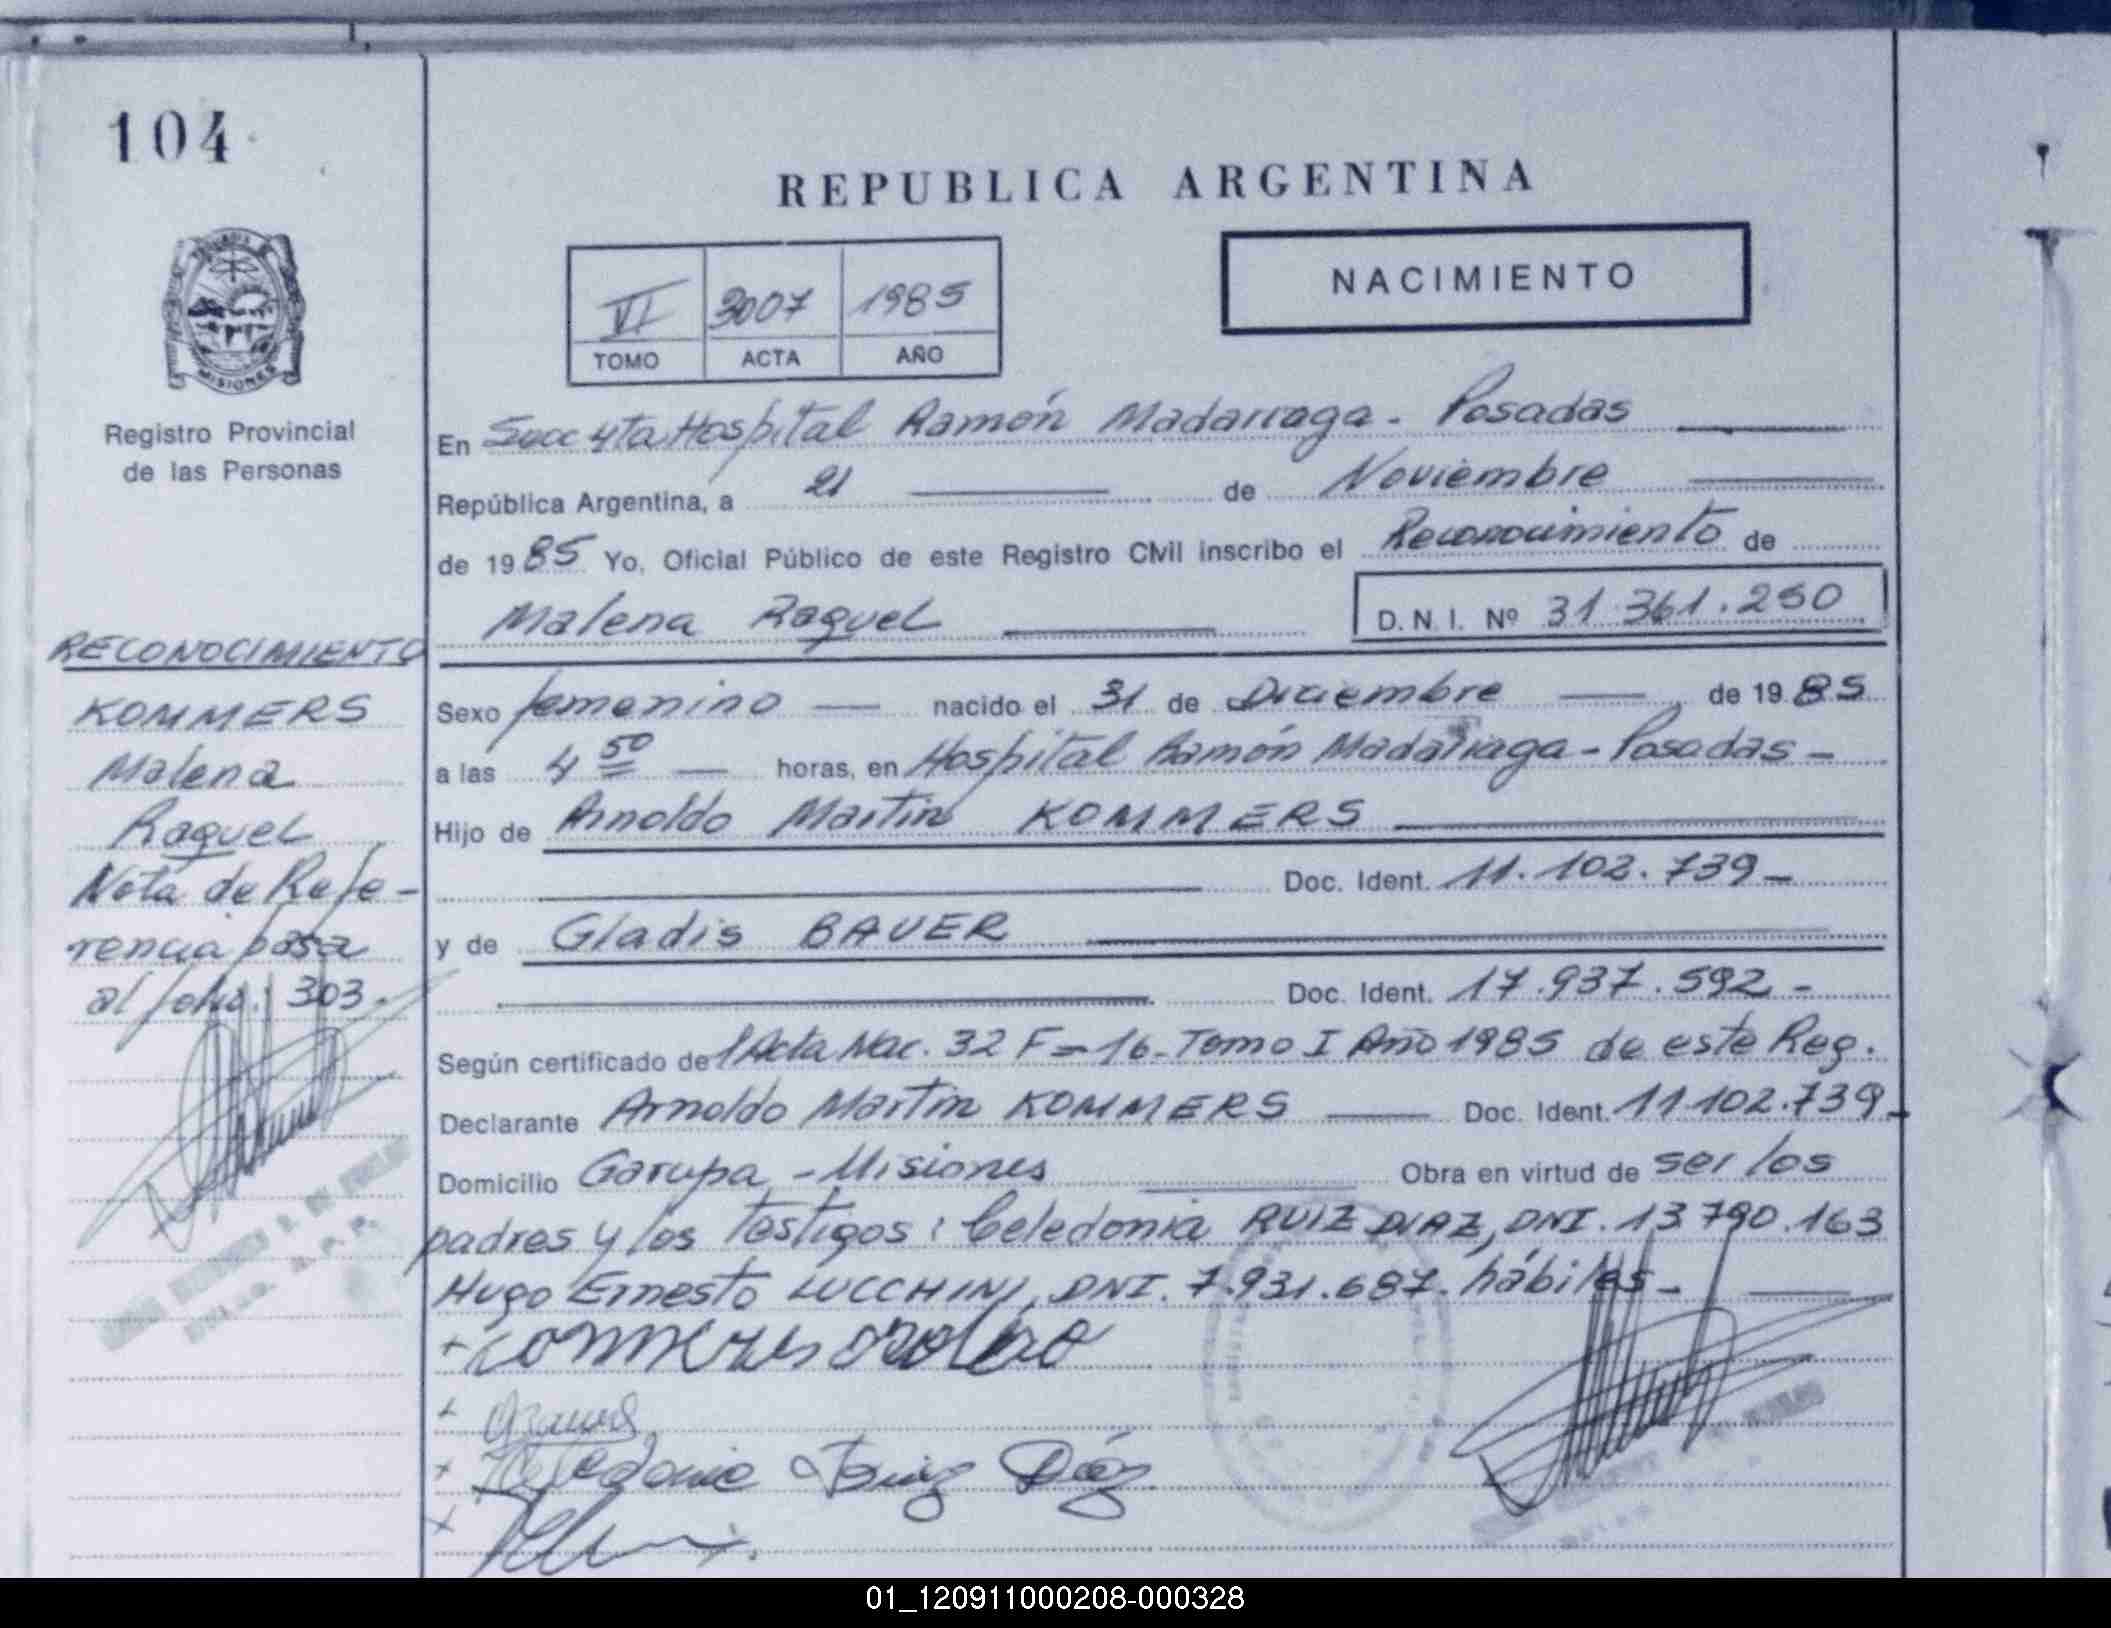 104
REPUBLICA ARGENTINA
NACIMIENTO
VI 3007 1985
TOMO ACTA AÑO
MISIONES
Registro Provincial
de las Personas
En Succ 4ta Hospital Ramón Madarriaga - Posadas
República Argentina, a 21 de Noviembre
de 1985 Yo, Oficial Público de este Registro Civil inscribo el Reconocimiento de
Malena Raquel D.N.I. Nº 31.361.250
Sexo femenino nacido el 31 de Diciembre de 1985
a las 4 50 horas, en Hospital Ramón Madariaga - Posadas -
Hijo de Arnoldo Martin KOMMERS
Doc. Ident. 11.102.739 -
y de Gladis BAUER
Doc. Ident. 17.937.592 -
Según certificado de l Acta Nac. 32 F=16- Tomo I Año 1985 de este Reg.
Declarante Arnoldo Martin KOMMERS Doc. Ident. 11.102.739 -
Domicilio Garupa - Misiones Obra en virtud de ser los
padres y los testigos: Celedonia RUIZ DIAZ, DNI. 13.790.163
Hugo Ernesto LUCCHINI, DNI. 7.931.687. hábiles -
Celedonia Ruiz Díaz
RECONOCIMIENTO
KOMMERS
Malena
Raquel
Nota de Refe-
rencia pasa
al folio: 303.
01_120911000208-000328